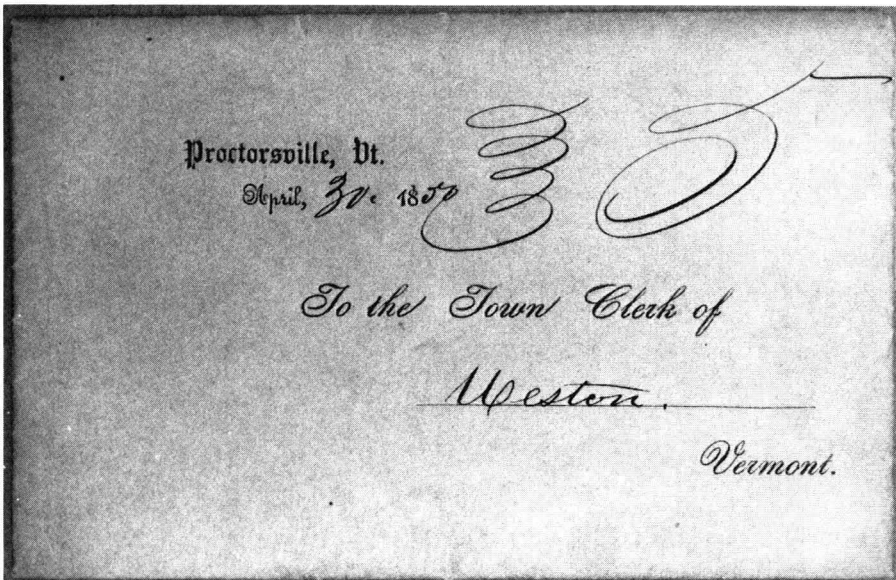 Proctorsville, Vt.
April, 30. 1850
To the Town Clerk of
Weston.
Vermont.